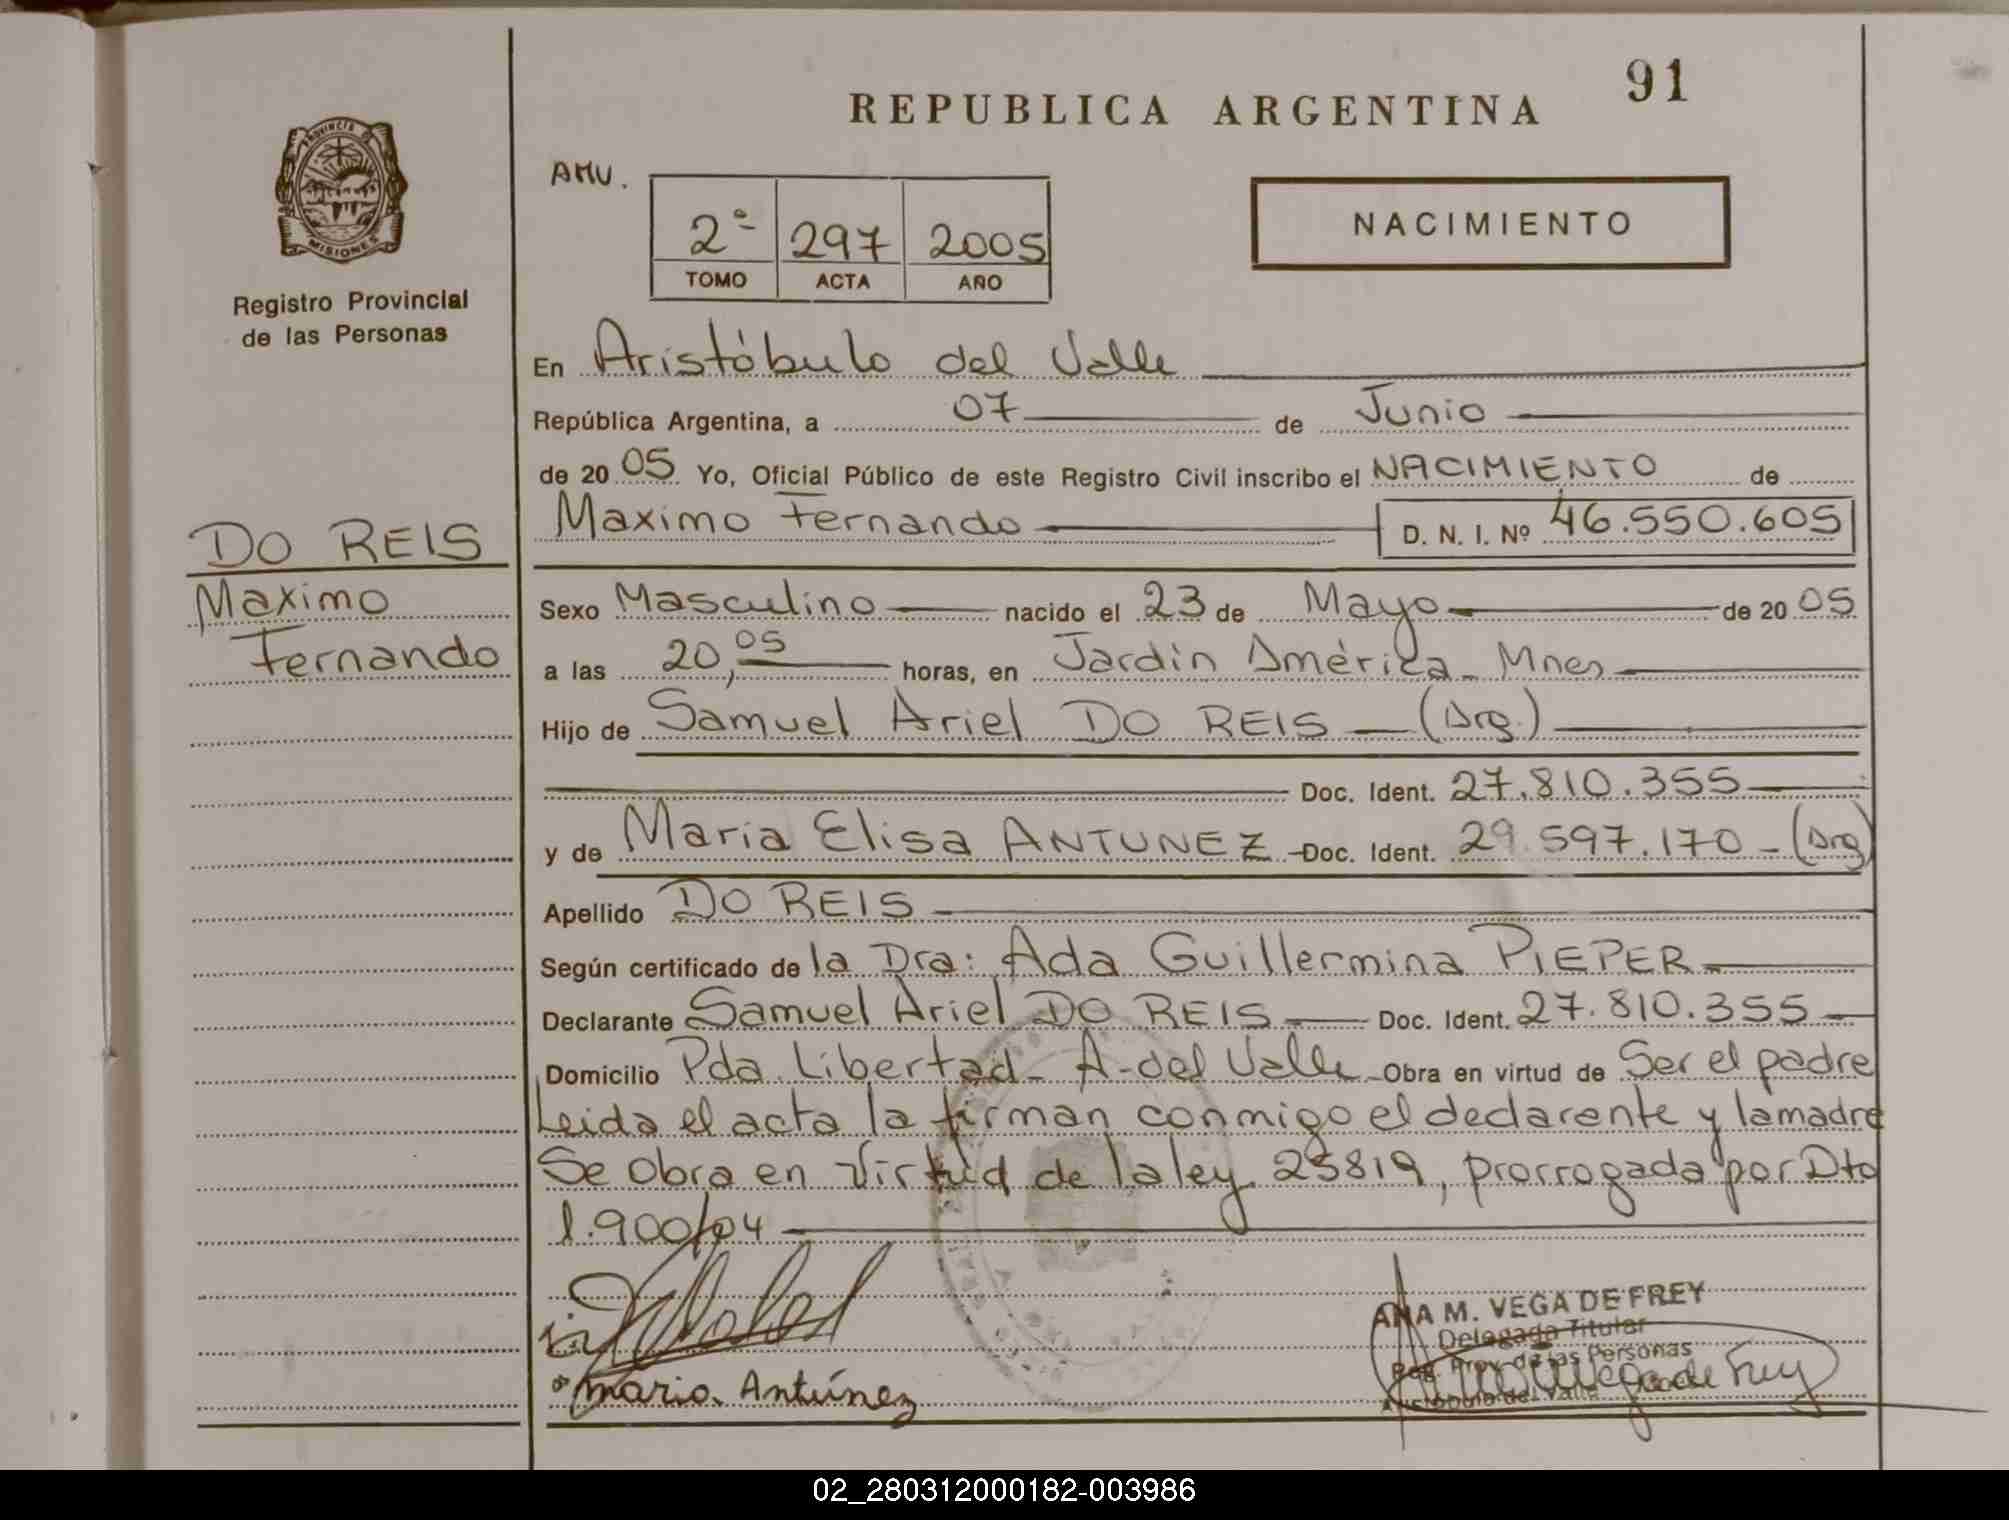 91
REPUBLICA ARGENTINA
PROVINCIA DE
MISIONES
Registro Provincial
de las Personas
AMV.
2º 297 2005
TOMO ACTA AÑO
NACIMIENTO
En Aristóbulo del Valle
República Argentina, a 07 de Junio
de 20 05 Yo, Oficial Público de este Registro Civil inscribo el NACIMIENTO de
Maximo Fernando D. N. I. Nº 46.550.605
DO REIS
Maximo
Fernando
Sexo Masculino nacido el 23 de Mayo de 20 05
a las 20,05 horas, en Jardín América - Mnes
Hijo de Samuel Ariel DO REIS - (Arg.)
Doc. Ident. 27.810.355
y de Maria Elisa ANTUNEZ - Doc. Ident. 29.597.170 - (Arg)
Apellido DO REIS
Según certificado de la Dra: Ada Guillermina PIEPER
Declarante Samuel Ariel DO REIS Doc. Ident. 27.810.355
Domicilio Pda. Libertad - A. del Valle - Obra en virtud de Ser el padre
Leida el acta la firman conmigo el declarente y la madre
Se obra en virtud de la ley 25819, prorrogada por Dto
1.900/04
ANA M. VEGA DE FREY
Delegada Titular
Reg. Prov. de las Personas
Aristóbulo del Valle
maria Antúnez
02_280312000182-003986